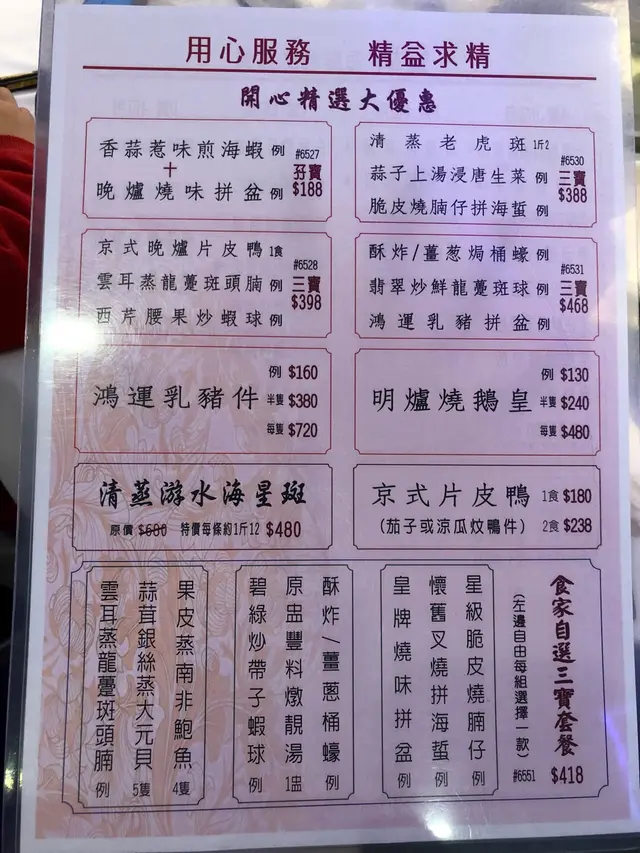 用心服務 精益求精
開心精選大優惠
香蒜惹味煎海蝦 例
+
晚爐燒味拼盆 例
#6527
孖寶
$188
清蒸老虎斑 1斤2
蒜子上湯浸唐生菜 例
脆皮燒腩仔拼海蜇 例
#6530
三寶
$388
京式晚爐片皮鴨 1食
雲耳蒸龍躉斑頭腩 例
西芹腰果炒蝦球 例
#6528
三寶
$398
酥炸/薑葱焗桶蠔 例
翡翠炒鮮龍躉斑球 例
鴻運乳豬拼盆 例
#6531
三寶
$468
鴻運乳豬件
例 $160
半隻 $380
每隻 $720
明爐燒鵝皇
例 $130
半隻 $240
每隻 $480
清蒸游水海星斑
原價 $680 特價每條約1斤12 $480
京式片皮鴨 1食 $180
(茄子或涼瓜炆鴨件) 2食 $238
食家自選三寶套餐 $418
(左邊自由每組選擇一款) #6551
星級脆皮燒腩仔 例
懷舊叉燒拼海蜇 例
皇牌燒味拼盆 例
酥炸/薑蔥桶蠔 例
原盅豐料燉靚湯 1盅
碧綠炒帶子蝦球 例
果皮蒸南非鮑魚 4隻
蒜茸銀絲蒸大元貝 5隻
雲耳蒸龍躉斑頭腩 例